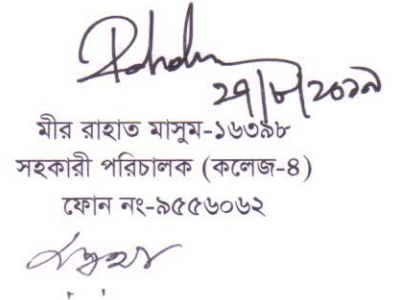 ২৭/৮/২০১৯
মীর রাহাত মাসুম-১৬৩৯৮
সহকারী পরিচালক (কলেজ-৪)
ফোন নং-৯৫৫৬০৬২